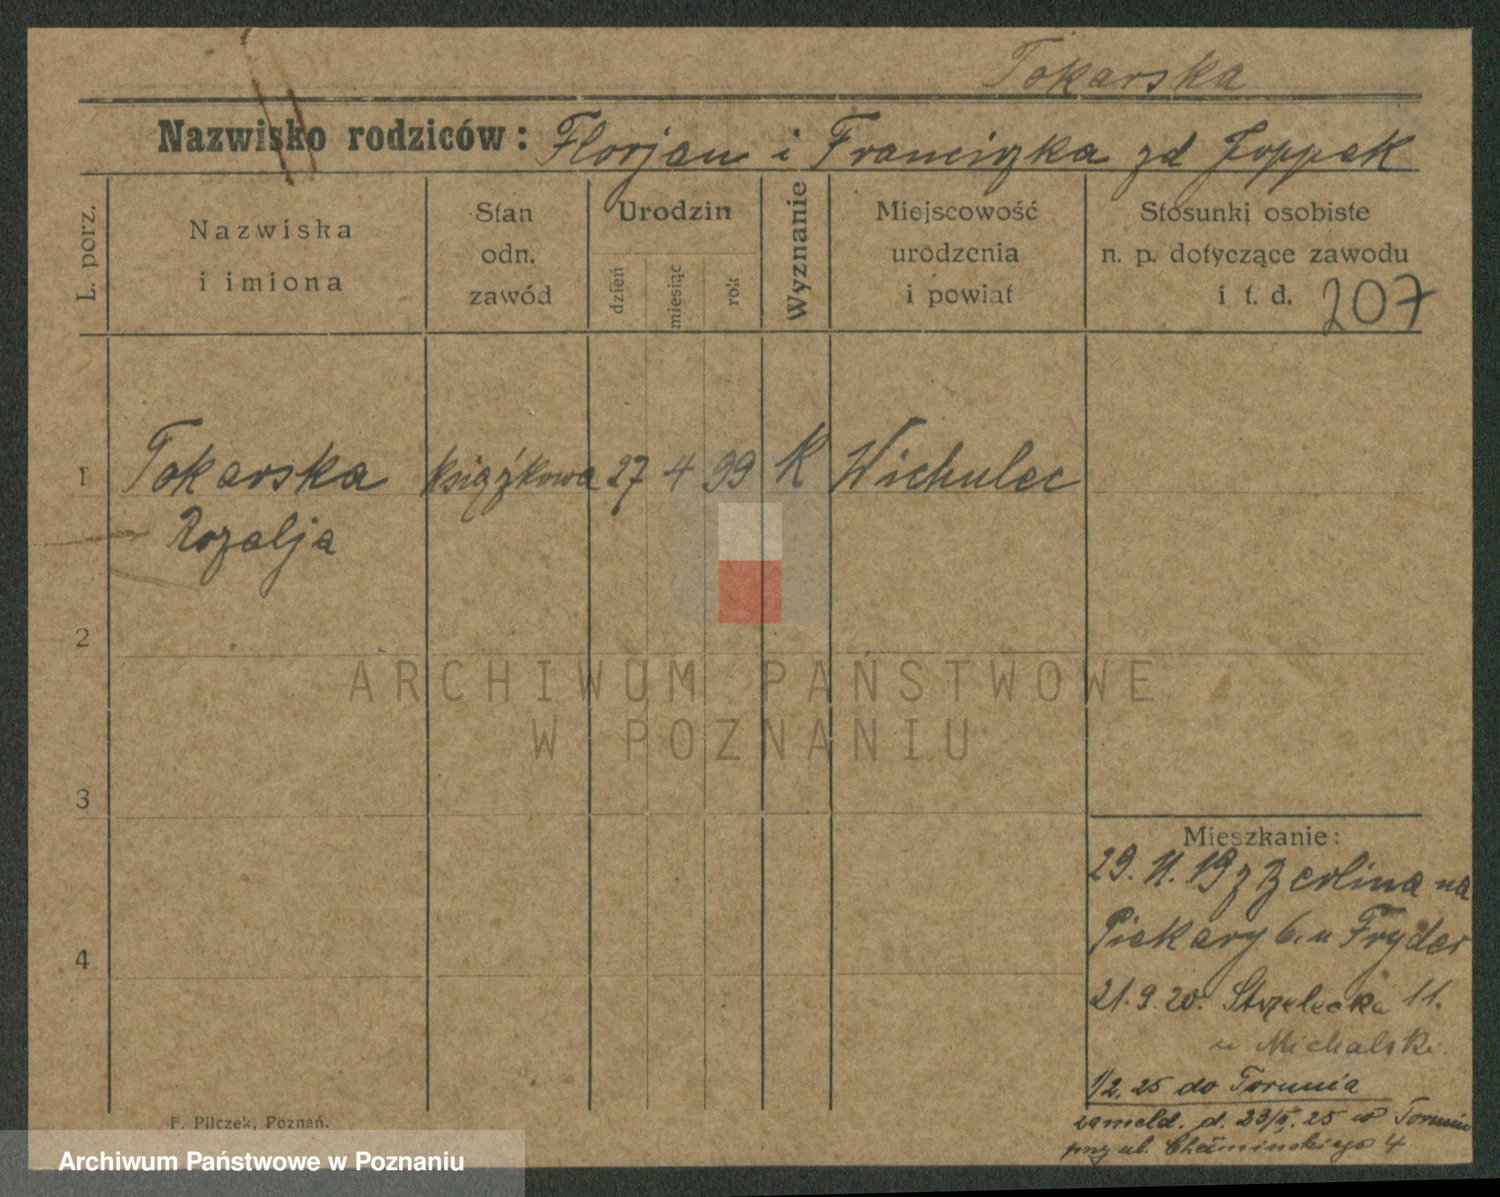 Tokarska
Nazwisko rodziców: Florjan i Franciszka zd Joppek
L. porz.
Nazwiska
i imiona
Stan
odn.
zawód
Urodzin
dzień
miesiąc
rok
Wyznanie
Miejscowość
urodzenia
i powiat
Stosunki osobiste
n. p. dotyczące zawodu
i t. d. 207
1 Tokarska książkowa 27 4 99 K Wichulec
Rozalja
2
3
4
Mieszkanie:
29. 11. 19 z Berlina na
Piekary 6. u Fryder
21. 9. 20. Strzelecka 11.
u Michalski
1/2. 25 do Torunia
zameld. d. 23/ 25 w Toruniu
przy ul. Chełmińskiego 4
F. Pilczek, Poznań.
ARCHIWUM PAŃSTWOWE
W POZNANIU
Archiwum Państwowe w Poznaniu